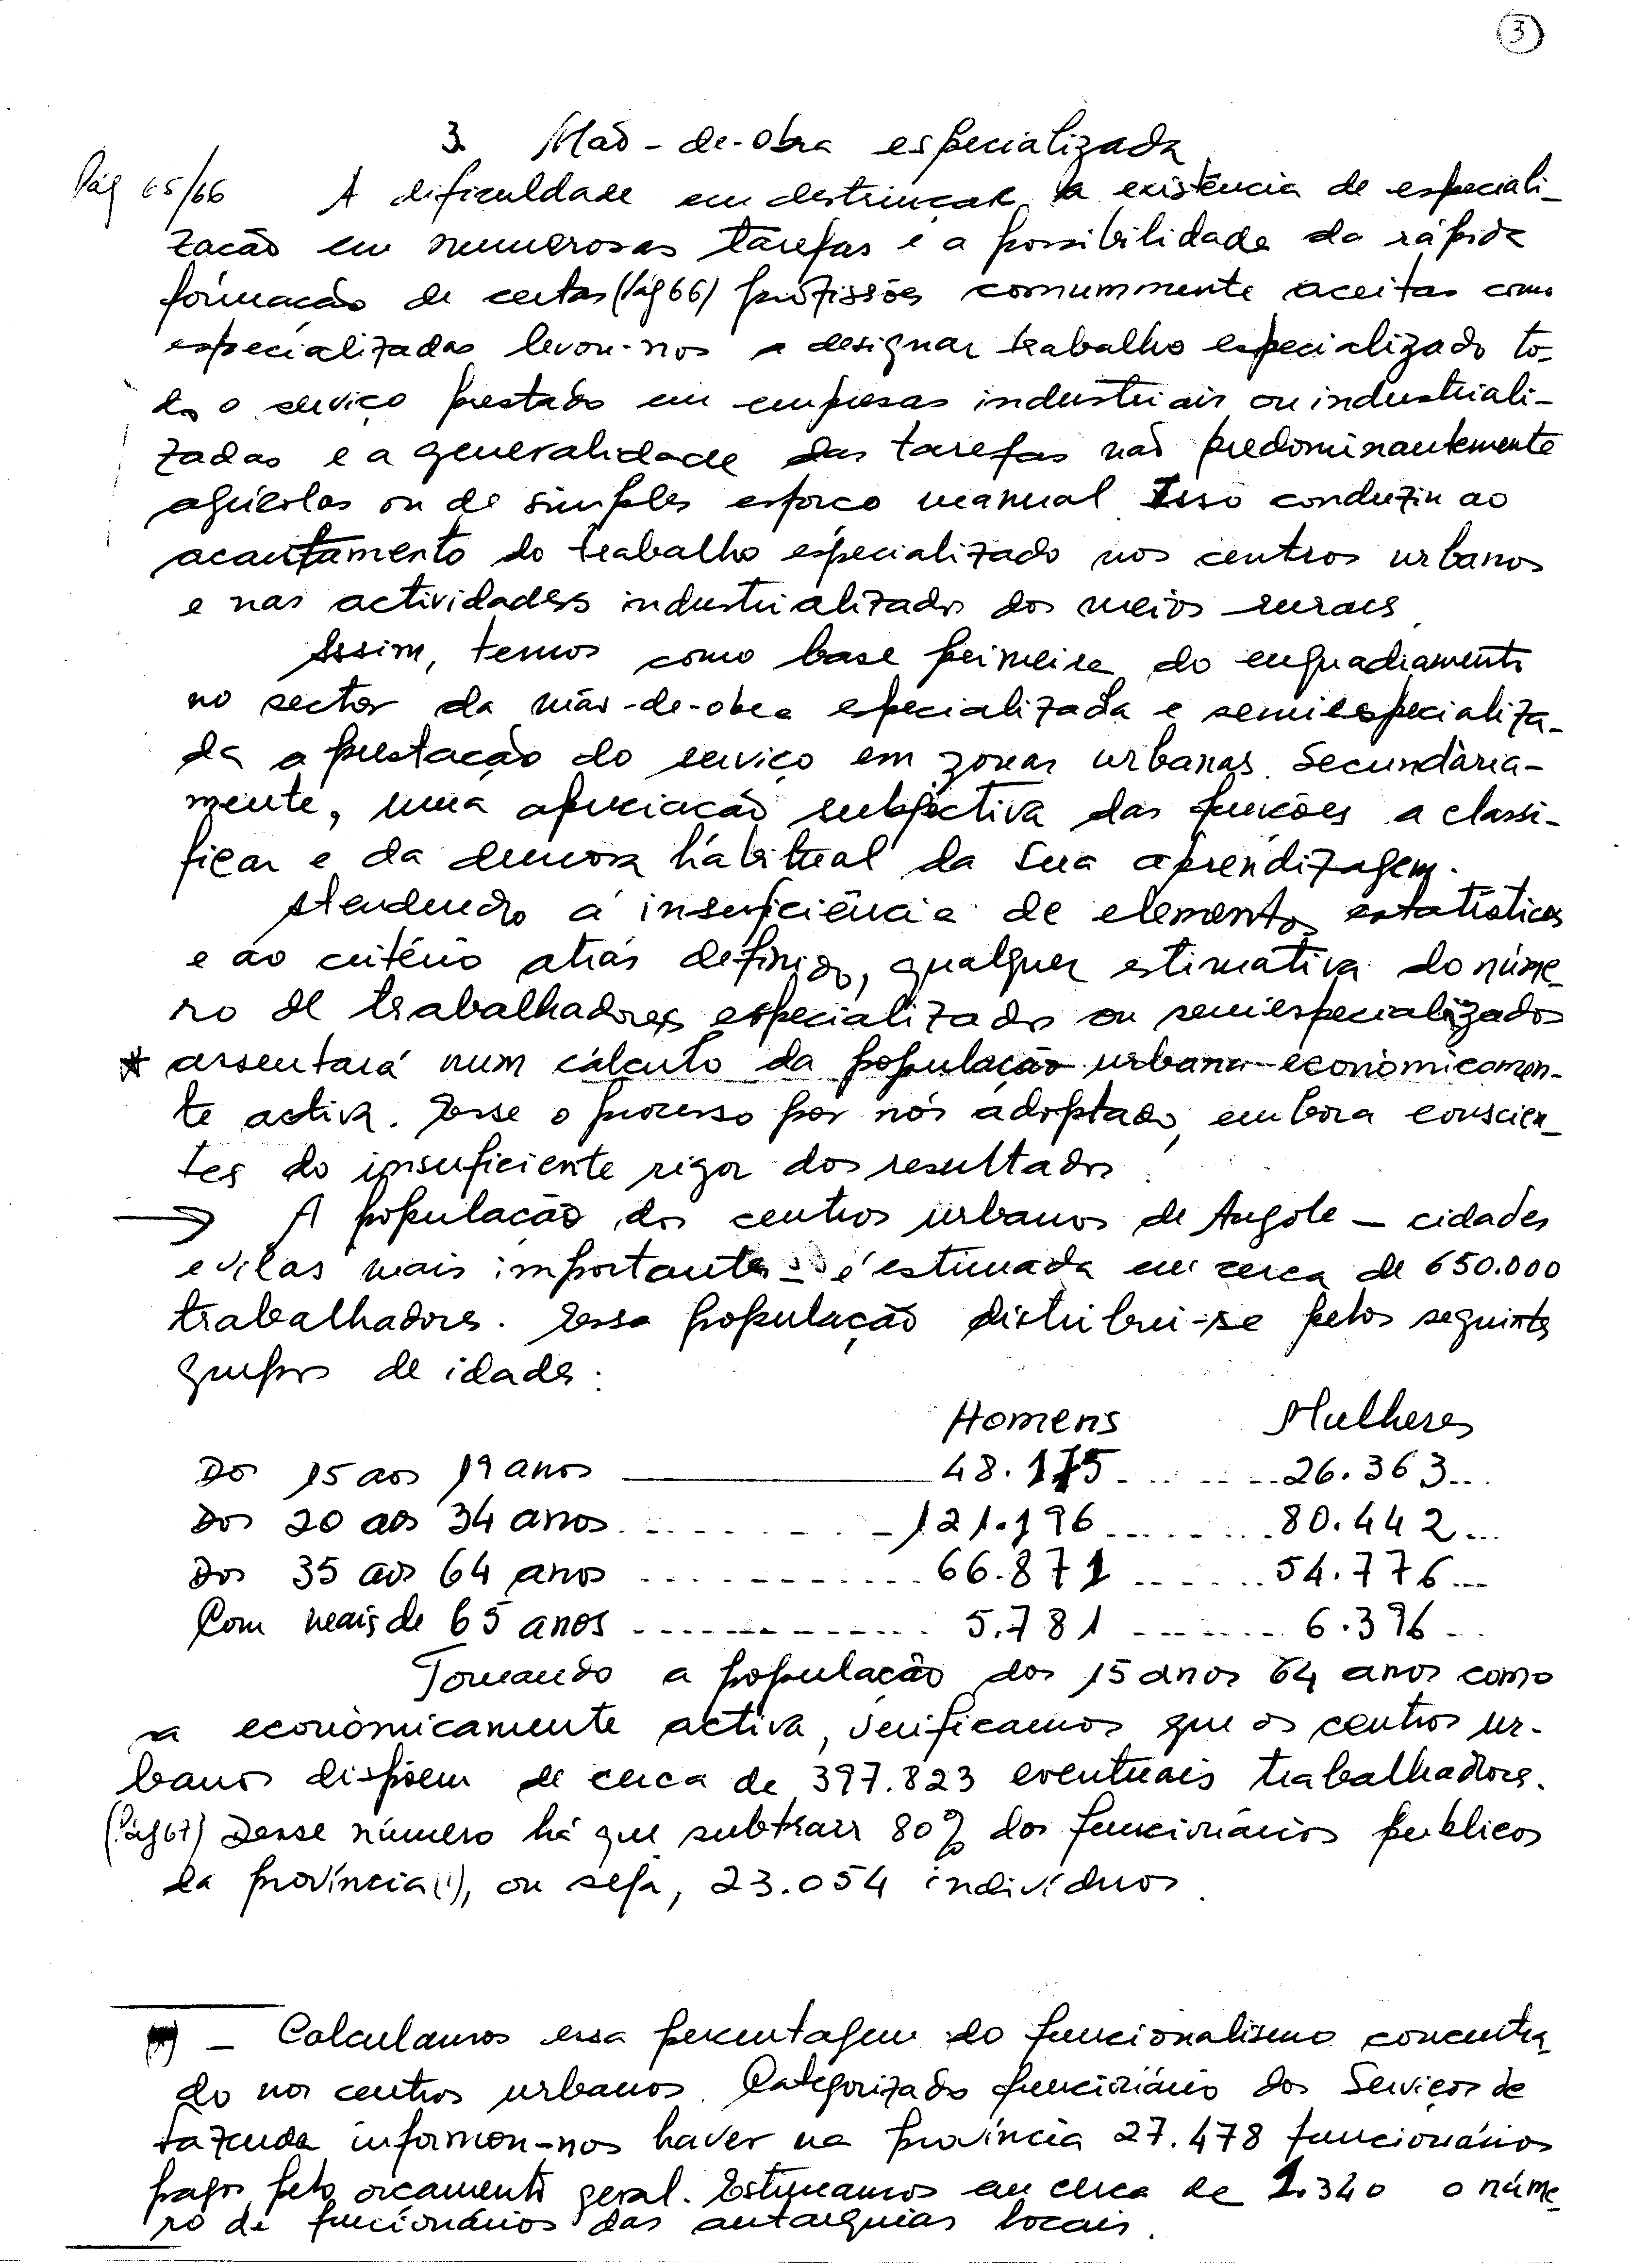 3
3. Mão-de-obra especializada
Pág 65/66 A dificuldade em destrinçar a existência de especiali-
zação em numerosas tarefas e a possibilidade da rápida
formação de certas (Pág 66) profissões comummente aceitas como
especializadas levou-nos a designar trabalho especializado to-
do o serviço prestado em empresas industriais ou industriali-
zadas e a generalidade das tarefas não predominantemente
agrícolas ou de simples esforço manual. Isso conduziu ao
acantamento do trabalho especializado nos centros urbanos
e nas actividades industrializados dos meios rurais.
Assim, temos como base primeira do enquadramento
no sector da mão-de-obra especializada e semiespecializa-
da a prestação do serviço em zonas urbanas. Secundària-
mente, uma apreciação subjectiva das funções a classi-
ficar e da demora habitual da sua aprendizagem.
Atendendo à insuficiência de elementos estatísticos
e ao critério atrás definido, qualquer estimativa do núme-
ro de trabalhadores especializados ou semiespecializados
* assentará num cálculo da população urbana econòmicamen-
te activa. Esse o processo por nós adoptado, embora conscien-
tes do insuficiente rigor dos resultados.
→ A população dos centros urbanos de Angola – cidades
e vilas mais importantes – é estimada em cerca de 650.000
trabalhadores. Essa população distribui-se pelos seguintes
grupos de idade:
Homens Mulheres
Dos 15 aos 19 anos ——— 48.175 ....... 26.363...
Dos 20 aos 34 anos ......... 121.196 ....... 80.442...
Dos 35 aos 64 anos ............ 66.871 ....... 54.776...
Com mais de 65 anos ............. 5.781 ....... 6.396...
Tomando a população dos 15 anos 64 anos como
a econòmicamente activa, verificamos que os centros ur-
banos dispõem de cerca de 397.823 eventuais trabalhadores.
(Pág 67) Desse número há que subtrair 80% dos funcionários publicos
da província (1), ou seja, 23.054 indivíduos.
(1) – Calculamos essa percentagem do funcionalismo concentra-
do nos centros urbanos. Categorizado funcionário dos Serviços de
Fazenda informou-nos haver na província 27.478 funcionários
pagos pelo orçamento geral. Estimamos em cerca de 1.340 o núme-
ro de funcionários das autarquias locais.